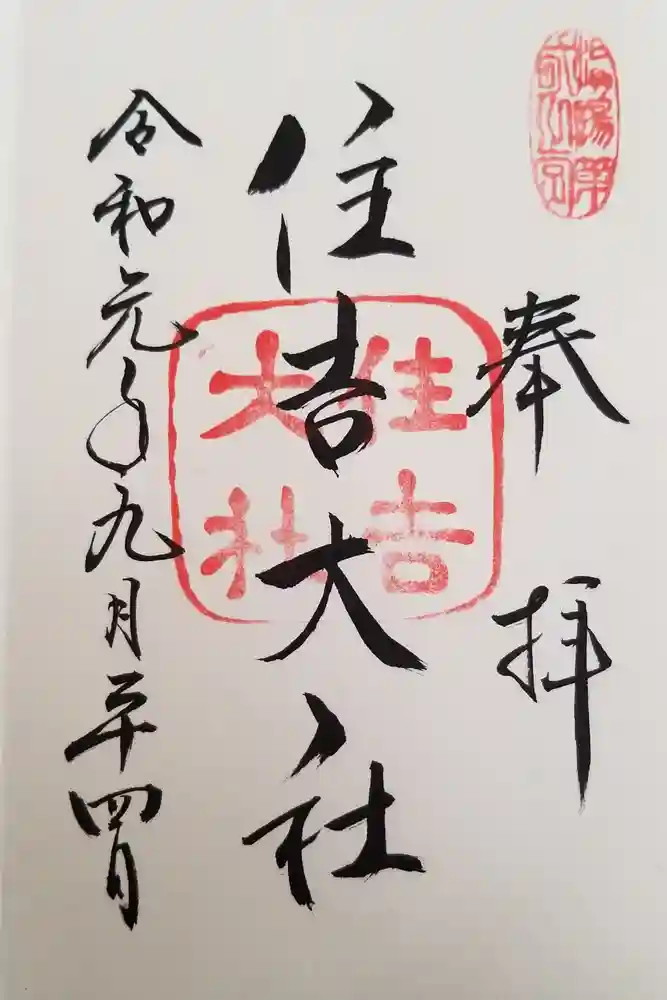 奉拝
住吉大社
住吉
大社
令和元年九月二十四日